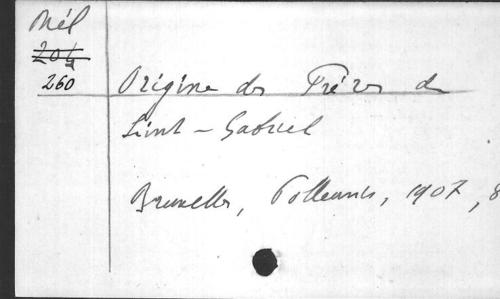 Mél
204
260
Origine des Frères de
Saint-Gabriel
Bruxelles, Polleunis, 1907, 8